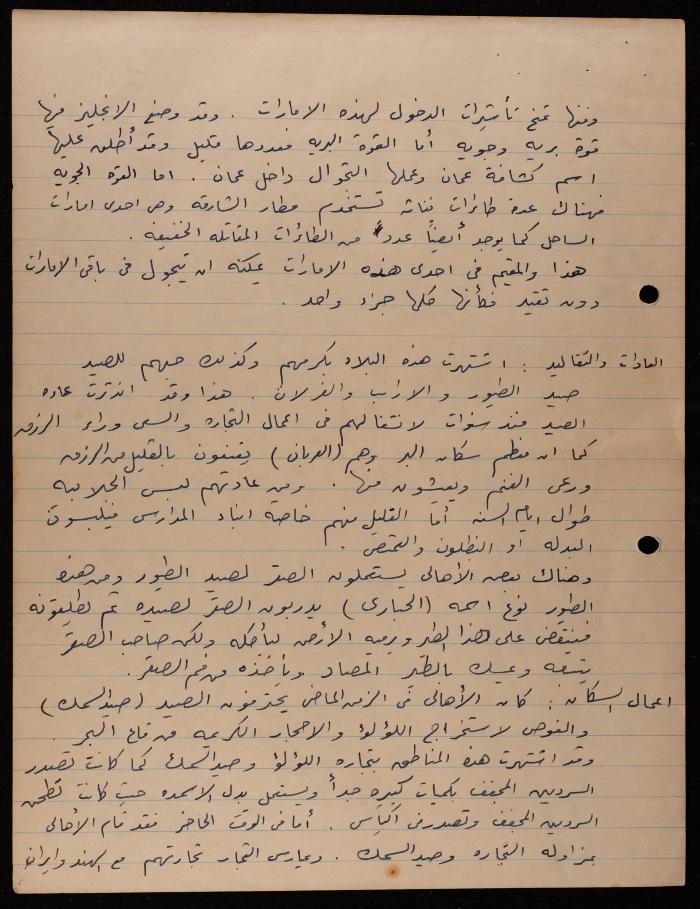 ومنها تمنح تأشيرات الدخول لهذه الامارات . وقد وضع الانجليز فيها
قوة بريه وجويه أما القوة البريه فعددها قليل وقد أُطلق عليها
اسم كشافة عمان وعملها التجوال داخل عمان . اما القوة الجويه
فهناك عدة طائرات نفاثه تستخدم مطار الشارقه وهى احدى امارات
الساحل كما يوجد أيضاً عدد من الطائرات المقاتله الخفيفه .
هذا والمقيم فى احدى هذه الامارات يمكنه ان يتجول فى باقى الامارات
دون تقيد فكأنها كلها جزء واحد .
العادات والتقاليد : اشتهرت هذه البلاد بكرمهم وكذلك حبهم للصيد
صيد الطيور و الارانب والغزلان . هذا وقد اندثرت عاده
الصيد منذ سنوات لانشغالهم فى اعمال التجاره والسعى وراء الرزق
كما ان معظم سكان البر وهم (العربان) يقنعون بالقليل من الرزق
ورعى الغنم ويعيشون منها . ومن عادتهم لبس الجلابيه
طوال ايام السنه أما القليل منهم خاصة ابناء المدارس فيلبسون
البدله أو البنطلون والقميص .
وهناك بعض الأهالى يستعملون الصقر لصيد الطيور ومن هذه
الطيور نوع اسمه (الحبارى) يدربون الصقر لصيده ثم يطلقونه
فينقض على هذا الطير ويرميه الأرض ليأكله ولكن صاحب الصقر
يتبعه ويمسك بالطير المصاد ويأخذه من فم الصقر .
اعمال السكان : كان الأهالى فى الزمن الماضى يحترفون الصيد (صيد السمك)
والغوص لاستخراج اللؤلؤ والاحجار الكريمه من قاع البحر .
وقد اشتهرت هذه المناطق بتجاره اللؤلؤ وصيد السمك كما كانت تصدر
السردين المجفف بكميات كبيره جداً ويستعمل بدل الاسمده حيث كانت تطحن
السردين المجفف وتصدر فى اكياس . أما فى الوقت الحاضر فقد قام الأهالى
بمزاولة التجاره وصيد السمك . ويمارس التجار تجارتهم مع الهند وايران